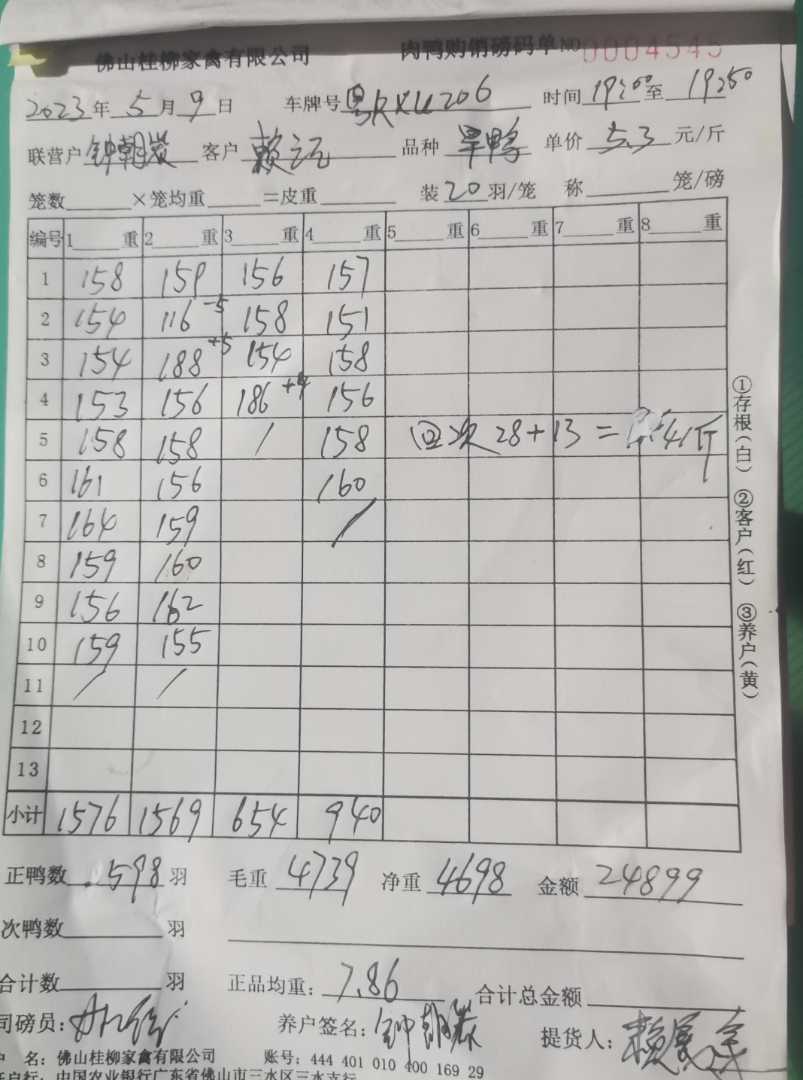 佛山桂柳家禽有限公司 肉鸭购销磅码单 NO 0004545
2023年 5月 9日 车牌号 至 1925⁰
联营户 钟朝炭 客户 赖 品种 旱鸭 单价 5.3 元/斤
笼数 ×笼均重 =皮重 装 20 羽/笼 称 笼/磅
编号 1 重 2 重 3 重 4 重 5 重 6 重 7 重 8 重
1 158 159 156 157
2 154 116 -5 158 151
3 154 188 +5 154 158
4 153 156 186 +4 156
5 158 158 / 158 回次 28+13= 41斤
6 161 156 160
7 164 159 /
8 159 160
9 156 162
10 159 155
11 / /
12
13
小计 1576 1569 654 940
正鸭数 598 羽 毛重 4739 净重 4698 金额 24899
次鸭数 羽
合计数 羽 正品均重: 7.86 合计总金额
司磅员: 养户签名: 钟朝炭 提货人: 赖
户 名: 佛山桂柳家禽有限公司 账号: 444 401 010 400 169 29
中国农业银行广东省佛山市三水区三水支行
①存根(白) ②客户(红) ③养户(黄)